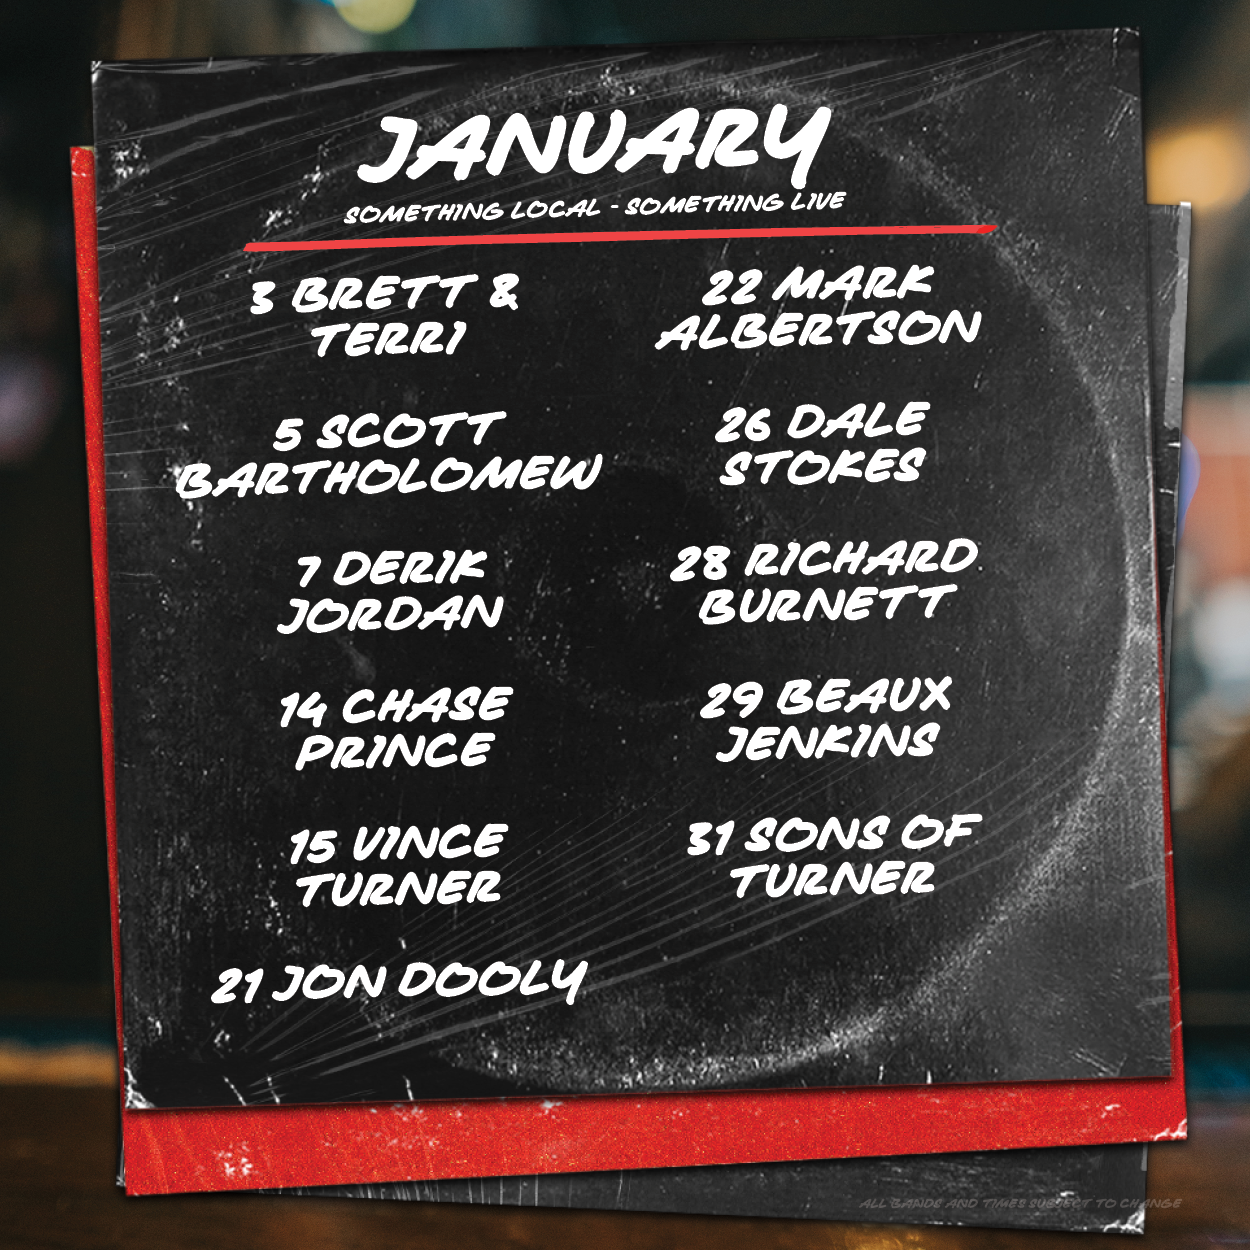 JANUARY
SOMETHING LOCAL - SOMETHING LIVE
3 BRETT &
TERRI
5 SCOTT
BARTHOLOMEW
7 DERIK
JORDAN
14 CHASE
PRINCE
15 VINCE
TURNER
21 JON DOOLY
22 MARK
ALBERTSON
26 DALE
STOKES
28 RICHARD
BURNETT
29 BEAUX
JENKINS
31 SONS OF
TURNER
ALL BANDS AND TIMES SUBJECT TO CHANGE